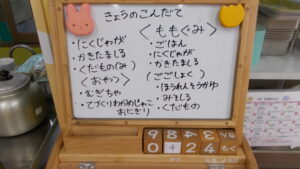 きょうのこんだて
・にくじゃが
・かきたましる
・くだもの(み)
〈おやつ〉
・むぎちゃ
・てづくりわかめじゃこ
おにぎり
〈ももぐみ〉
・ごはん
・にくじゃが
・かきたましる
〈ごごしょく〉
・ほうれんそうかゆ
・みそしる
・くだもの
9 8 4
0 4 2 4 もく